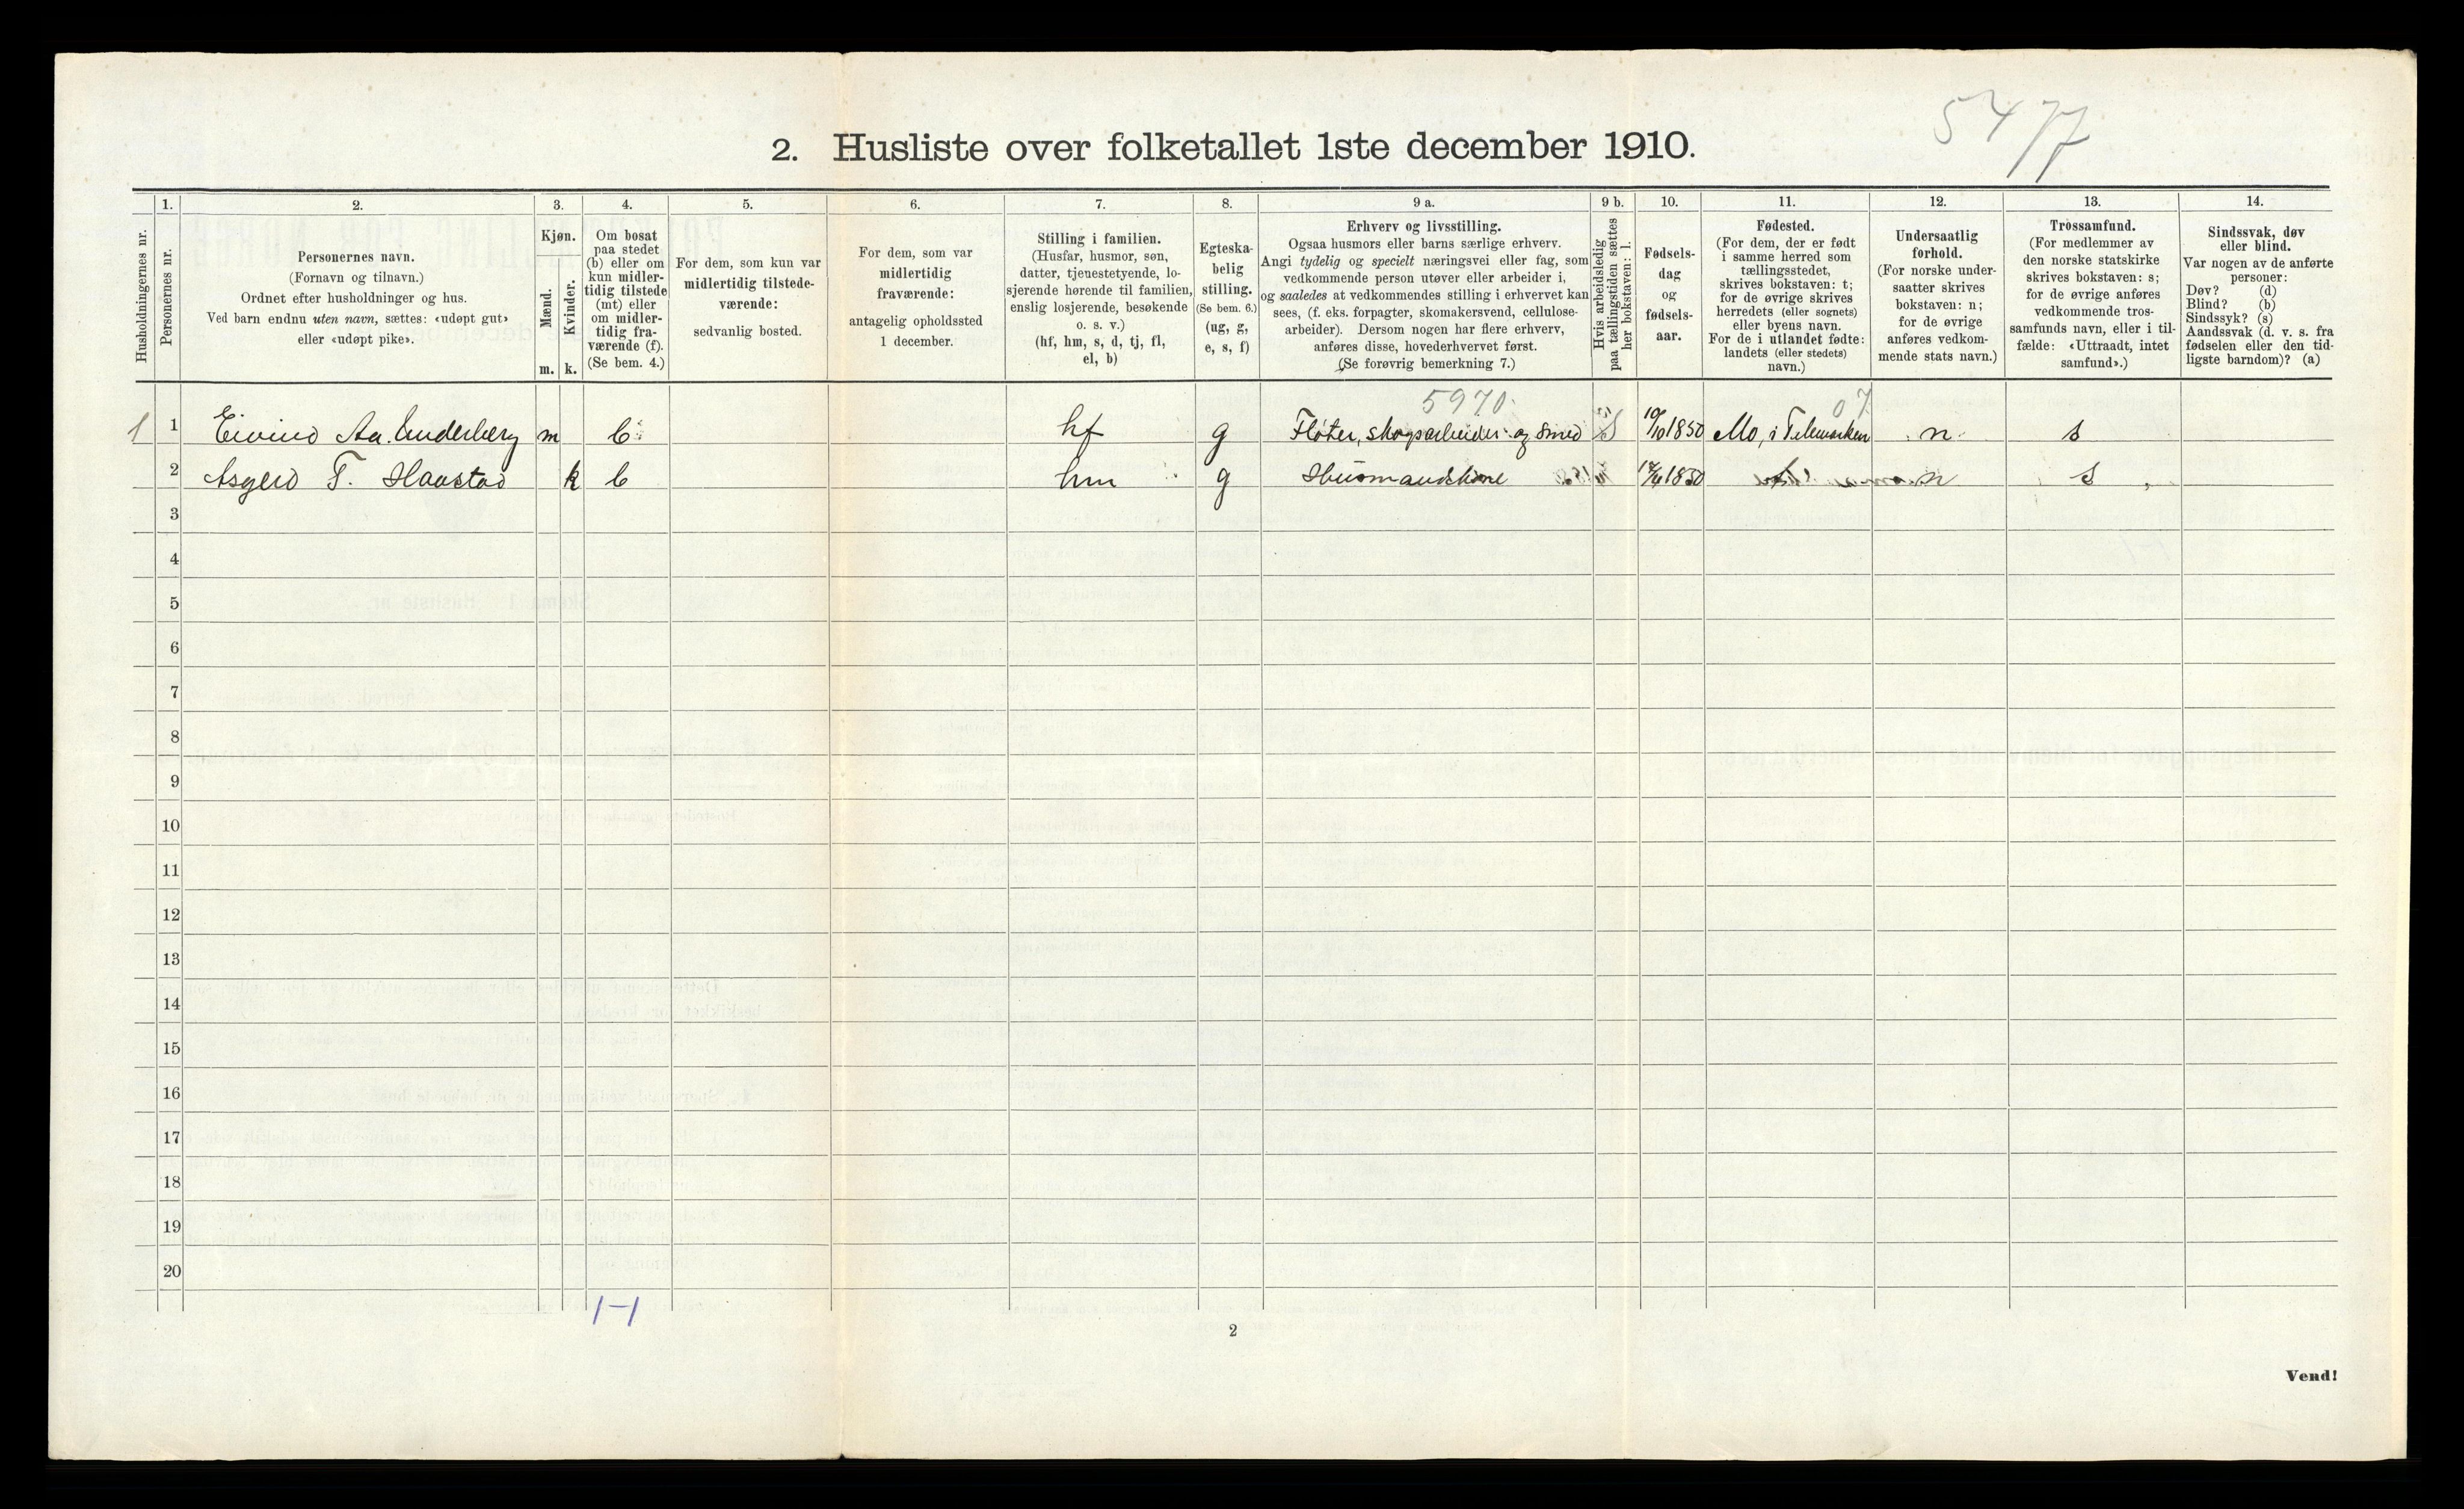 5477
2. Husliste over folketallet 1ste december 1910.
Husholdningernes nr.
1.
Personernes nr.
2.
Personernes navn.
(Fornavn og tilnavn.)
Ordnet efter husholdninger og hus.
Ved barn endnu uten navn, sættes: «udøpt gut»
eller «udøpt pike».
3.
Kjøn.
Mænd.
Kvinder.
m. k.
4.
Om bosat
paa stedet
(b) eller om
kun midler-
tidig tilstede
(mt) eller
om midler-
tidig fra-
værende (f).
(Se bem. 4.)
5.
For dem, som kun var
midlertidig tilstede-
værende:
sedvanlig bosted.
6.
For dem, som var
midlertidig
fraværende:
antagelig opholdssted
1 december.
7.
Stilling i familien.
(Husfar, husmor, søn,
datter, tjenestetyende, lo-
sjerende hørende til familien,
enslig losjerende, besøkende
o. s. v.)
(hf, hm, s, d, tj, fl,
el, b)
8.
Egteska-
belig
stilling.
(Se bem. 6.)
(ug, g,
e, s, f)
9 a.
Erhverv og livsstilling.
Ogsaa husmors eller barns særlige erhverv.
Angi tydelig og specielt næringsvei eller fag, som
vedkommende person utøver eller arbeider i,
og saaledes at vedkommendes stilling i erhvervet kan
sees, (f. eks. forpagter, skomakersvend, cellulose-
arbeider). Dersom nogen har flere erhverv,
anføres disse, hovederhvervet først.
(Se forøvrig bemerkning 7.)
9 b.
Hvis arbeidsledig
paa tællingstiden sættes
her bokstaven: l.
10.
Fødsels-
dag
og
fødsels-
aar.
11.
Fødested.
(For dem, der er født
i samme herred som
tællingsstedet,
skrives bokstaven: t;
for de øvrige skrives
herredets (eller sognets)
eller byens navn.
For de i utlandet fødte:
landets (eller stedets)
navn.)
12.
Undersaatlig
forhold.
(For norske under-
saatter skrives
bokstaven: n;
for de øvrige
anføres vedkom-
mende stats navn.)
13.
Trossamfund.
(For medlemmer av
den norske statskirke
skrives bokstaven: s;
for de øvrige anføres
vedkommende tros-
samfunds navn, eller i til-
fælde: «Uttraadt, intet
samfund».)
14.
Sindssvak, døv
eller blind.
Var nogen av de anførte
personer:
Døv? (d)
Blind? (b)
Sindssyk? (s)
Aandssvak (d. v. s. fra
fødselen eller den tid-
ligste barndom)? (a)
5970 07
1 1 Eivind Aa. Anderberg m b hf g Fløter, skogsarbeider og smed 10/10 1850 Mo, i Telemarken n s
2 Asgerd T. Haastad k b hm g Husmandskone 1850 n s
3
4
5
6
7
8
9
10
11
12
13
14
15
16
17
18
19
20
1-1
2
Vend!